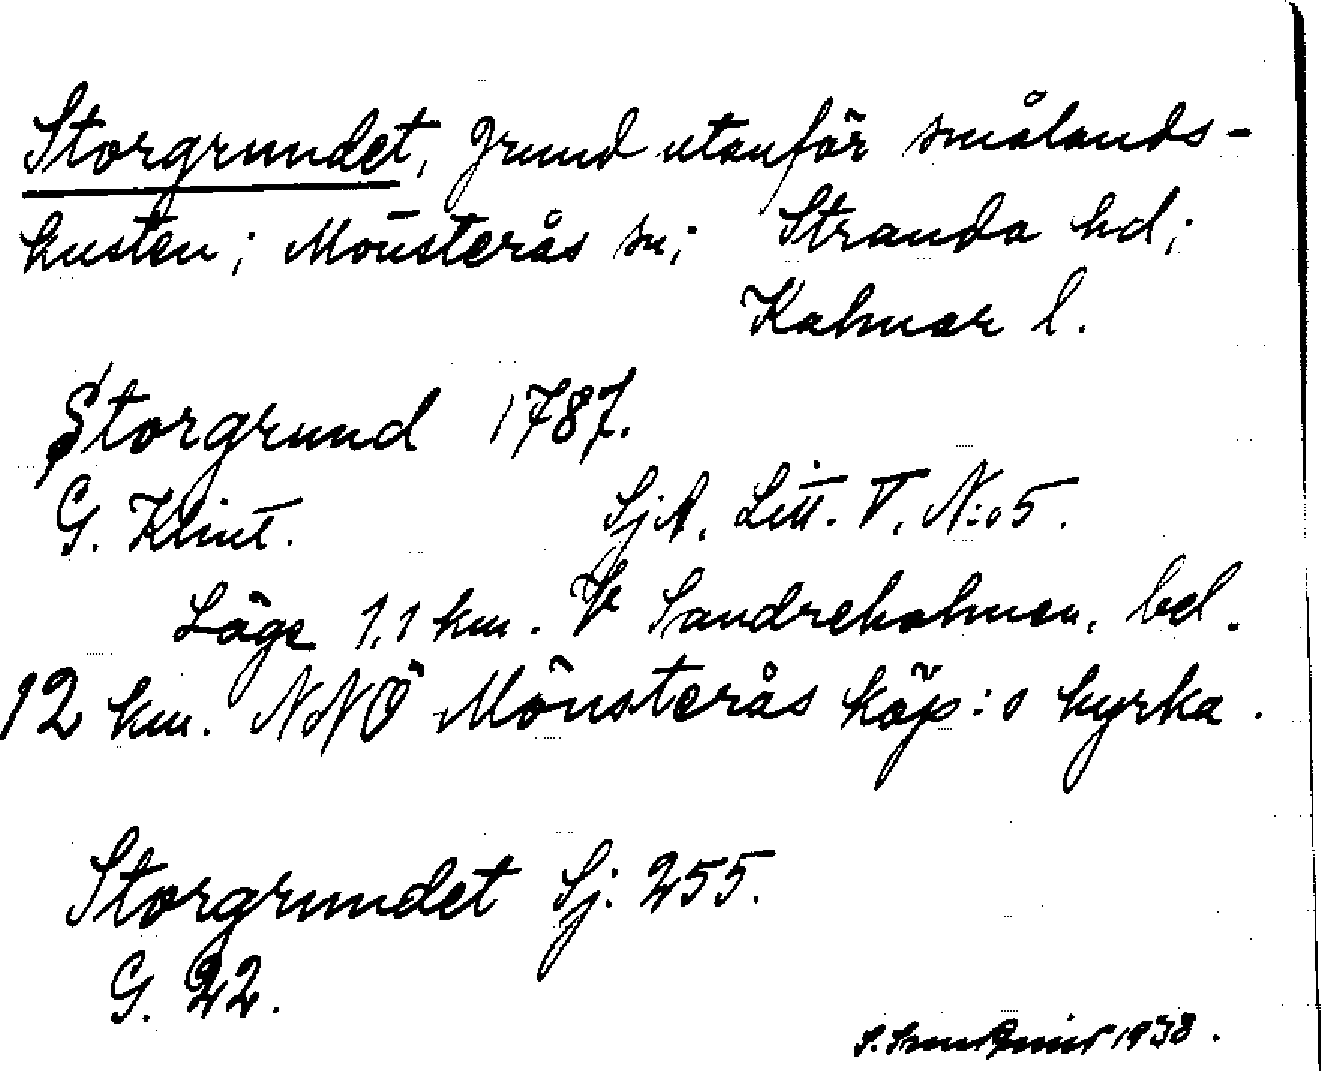 Storgrundet, grund utanför smålands-
kusten; Mönsterås sn; Stranda hd;
Kalmar l.
Storgrund 1787.
G. Klint. SjA. Litt. V. N:o 5.
Läge 1,1 km. V Sandreholmen, bel.
12 km. NNÖ Mönsterås köp:s kyrka.
Storgrundet Sj. 255.
G. 22.
S. 1938.